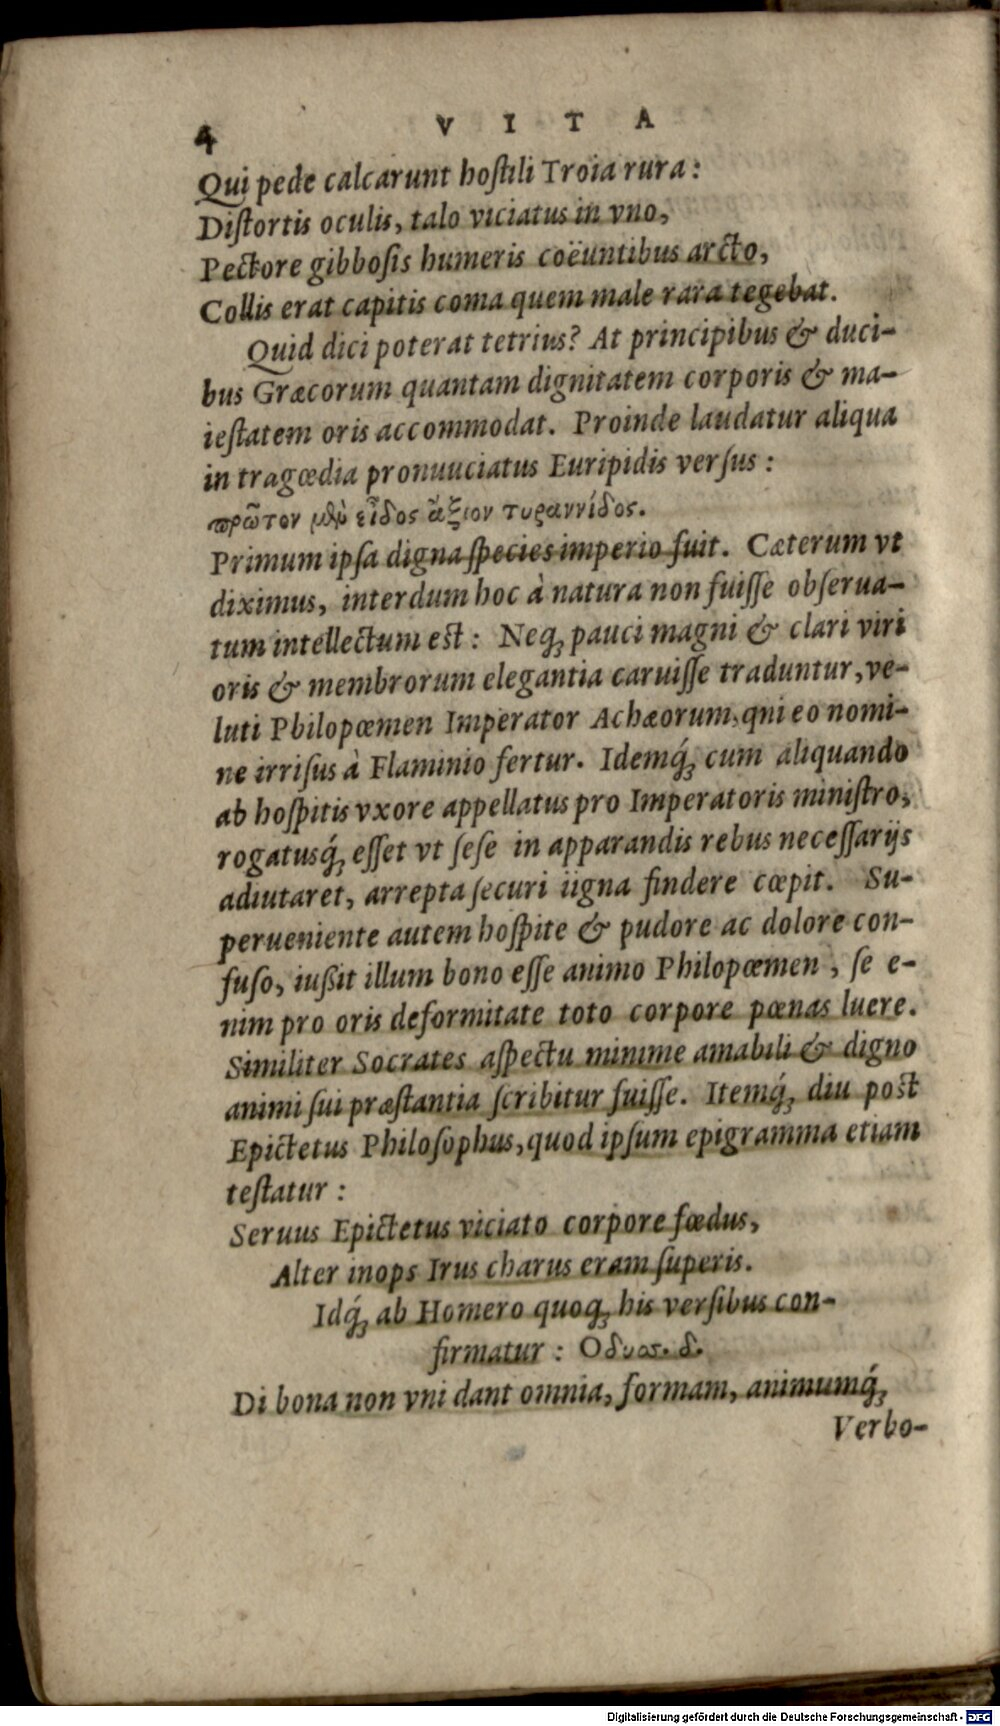 4 VITA
Qui pede calcarunt hoſtili Troia rura:
Diſtortis oculis, talo viciatus in vno,
Pectore gibboſis humeris coëuntibus arcto,
Collis erat capitis coma quem male rara tegebat.
Quid dici poterat tetrius? At principibus & duci-
bus Græcorum quantam dignitatem corporis & ma-
ieſtatem oris accommodat. Proinde laudatur aliqua
in tragœdia pronuuciatus Euripidis verſus:
πρῶτον μὲν εἶδος ἄξιον τυραννίδος.
Primum ipſa digna ſpecies imperio fuit. Cæterum vt
diximus, interdum hoc à natura non fuiſſe obſerua-
tum intellectum est: Neq; pauci magni & clari viri
oris & membrorum elegantia caruiſſe traduntur, ve-
luti Pbilopœmen Imperator Achæorum, qni eo nomi-
ne irriſus à Flaminio fertur. Idemq́; cum aliquando
ab hoſpitis vxore appellatus pro Imperatoris miniſtro,
rogatusq́; eſſet vt ſeſe in apparandis rebus neceſſarijs
adiutaret, arrepta ſecuri iigna findere cœpit. Su-
perueniente autem hoſpite & pudore ac dolore con-
fuſo, iußit illum bono eſſe animo Philopœmen, ſe e-
nim pro oris deformitate toto corpore pœnas luere.
Similiter Socrates aſpectu minime amabili & digno
animi ſui præſtantia ſcribitur fuiſſe. Itemq́; diu post
Epictetus Philoſophus, quod ipſum epigramma etiam
teſtatur:
Seruus Epictetus viciato corpore fœdus,
Alter inops Irus charus eram ſuperis.
Idq́; ab Homero quoq; his verſibus con-
firmatur: Οδυασ. δ.
Di bona non vni dant omnia, formam, animumq́;
Verbo-
Digitalisierung gefördert durch die Deutsche Forschungsgemeinschaft - DFG